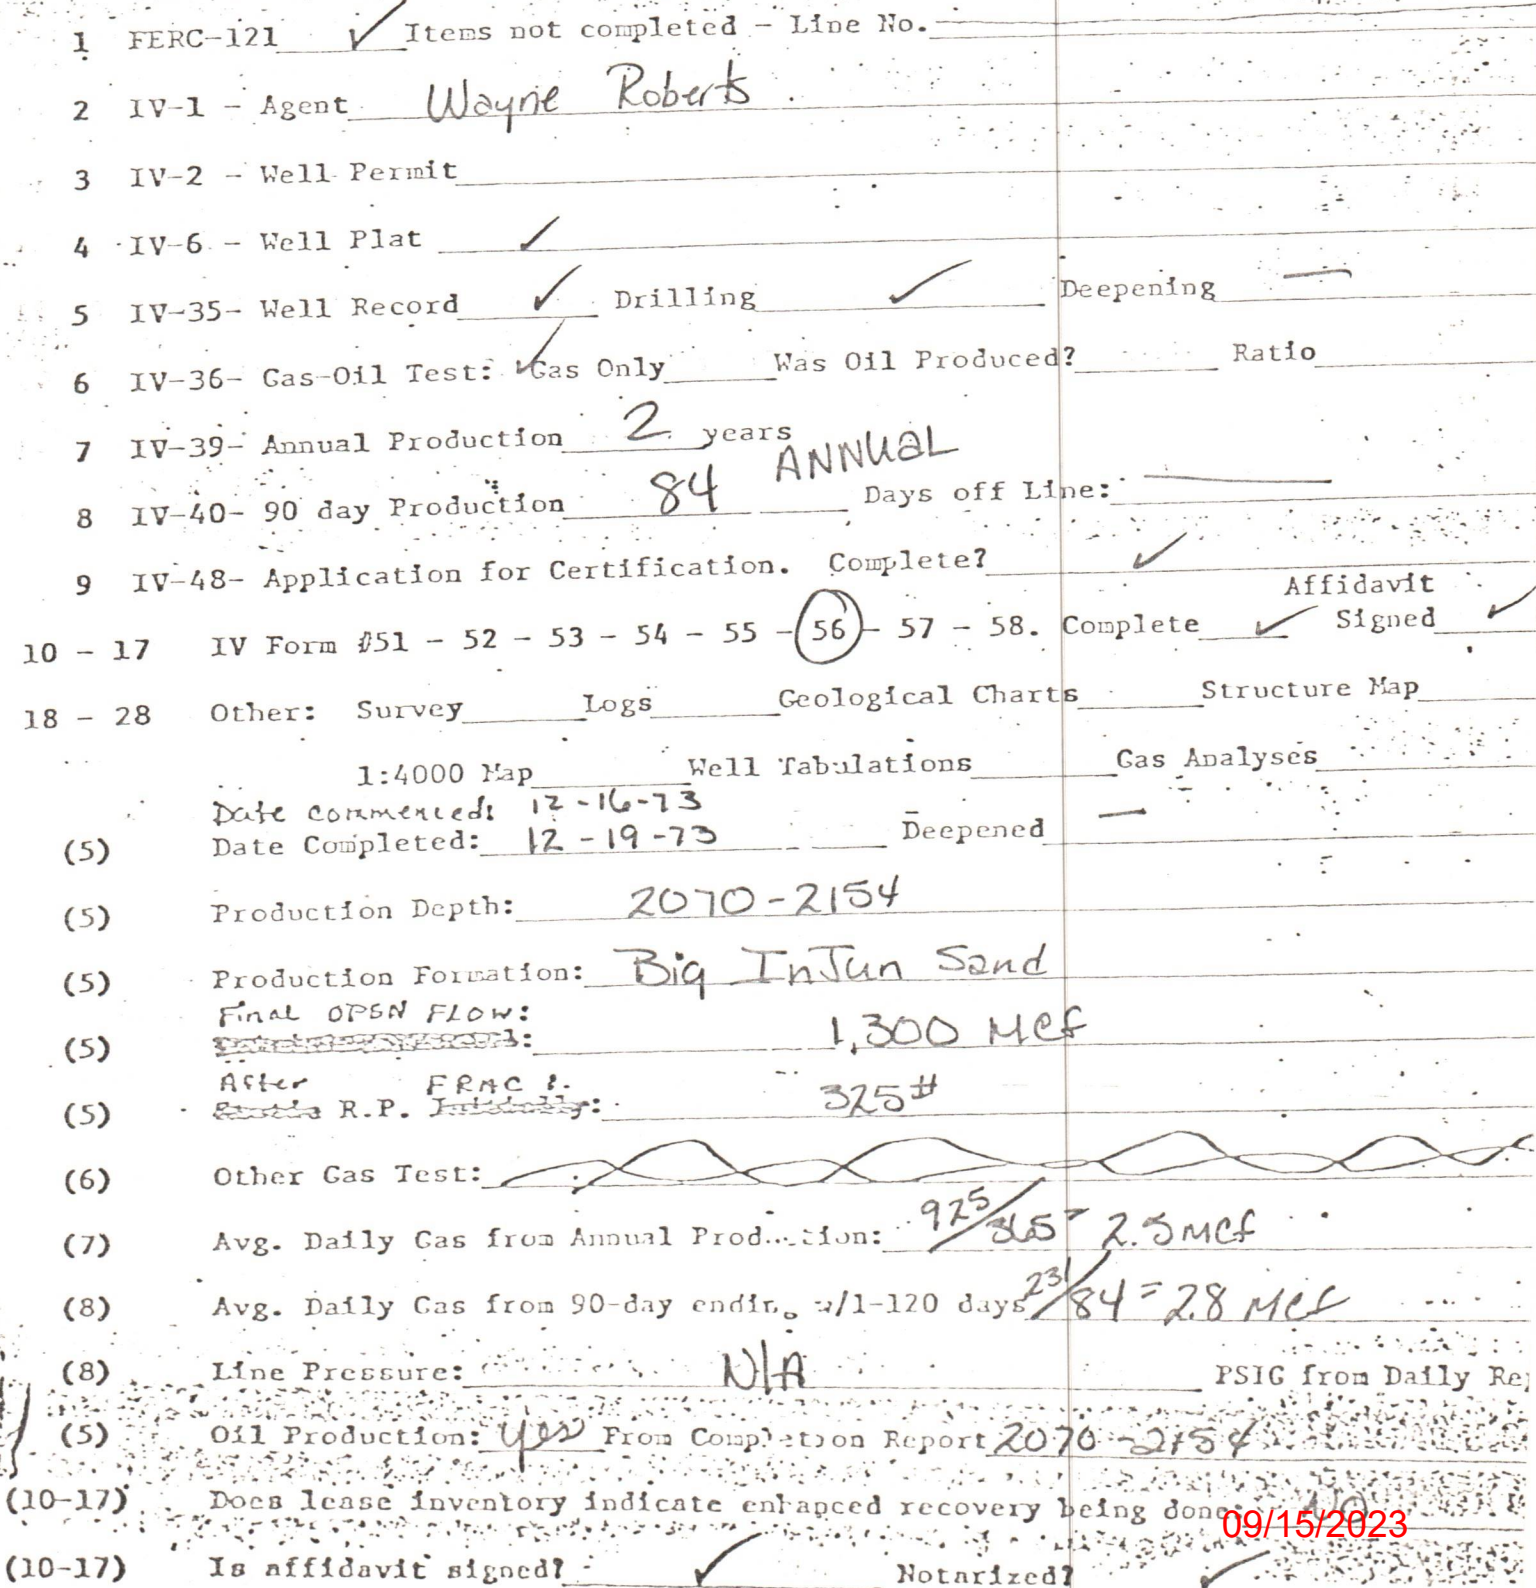 1 FERC-121 ✓ Items not completed - Line No.
2 IV-1 - Agent Wayne Roberts
3 IV-2 - Well Permit
4 IV-6 - Well Plat ✓
5 IV-35- Well Record ✓ Drilling ✓ Deepening —
6 IV-36- Gas-Oil Test: ✓ Gas Only Was Oil Produced? Ratio
7 IV-39- Annual Production 2 years
ANNUAL
8 IV-40- 90 day Production 84 Days off Line: —
9 IV-48- Application for Certification. Complete? ✓
Affidavit
10 - 17 IV Form #51 - 52 - 53 - 54 - 55 - 56 - 57 - 58. Complete ✓ Signed ✓
18 - 28 Other: Survey Logs Geological Charts Structure Map
1:4000 Map Well Tabulations Gas Analyses
Date commenced: 12-16-73
(5) Date Completed: 12-19-73 Deepened —
(5) Production Depth: 2070-2154
(5) Production Formation: Big InJun Sand
Final OPEN FLOW:
(5) : 1,300 Mcf
After FRAC :
(5) R.P. : 325#
(6) Other Gas Test:
(7) Avg. Daily Gas from Annual Production: 925/365 = 2.5 Mcf
(8) Avg. Daily Gas from 90-day ending w/1-120 days 231/84 = 2.8 Mcf
(8) Line Pressure: N/A PSIG from Daily Re
(5) Oil Production: yes From Completion Report 2070-2154
(10-17) Does lease inventory indicate enhanced recovery being done: NO
09/15/2023
(10-17) Is affidavit signed? ✓ Notarized? ✓